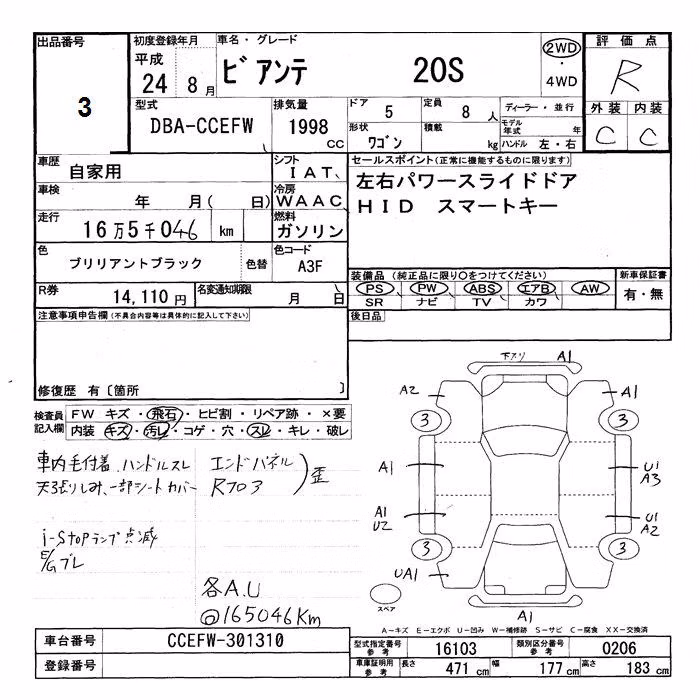 出品番号 初度登録年月 車名・グレード 2WD 評価点
3 平成 24 8月 ビアンテ 20S ・ 4WD R
型式 排気量 ドア 定員 ディーラー・並行 外装 内装
DBA-CCEFW 1998 cc 5 8人 モデル年式 年 C C
形状 ワゴン 積載 kg ハンドル 左・右
車歴 自家用 シフト IAT、 セールスポイント(正常に機能するものに限ります)
車検 年 月( 日) 冷房 WAAC 左右パワースライドドア
走行 16万5千046 km 燃料 ガソリン HID スマートキー
色 ブリリアントブラック 色替 色コード A3F
装備品(純正品に限り○をつけてください) 新車保証書
R券 14,110円 名変通知期限 月 日 PS PW ABS エアB AW 有・無
SR ナビ TV カワ
注意事項申告欄(不具合内容等は具体的に記入して下さい) 後日品
修復歴 有〔箇所 〕
検査員記入欄 FW キズ・飛石・ヒビ割・リペア跡・×要
内装 キズ・汚レ・コゲ・穴・スレ・キレ・破レ
車内毛付着、ハンドルスレ エンドパネル 歪
天張りしみ、一部シートカバー R703
i-Stopランプ点滅
E/Gブレ
各A.U
@165046Km
下スリ A1
A2 A1
3 3
A1 U1
A3
A1 U1
U2 A2
3 3
UA1
スペア A1
A－キズ E－エクボ U－凹み W－補修跡 S－サビ C－腐食 XX－交換済
車台番号 CCEFW-301310 型式指定番号 参考 16103 類別区分番号 参考 0206
登録番号 車庫証明用 参考 長さ 471cm 幅 177cm 高さ 183cm